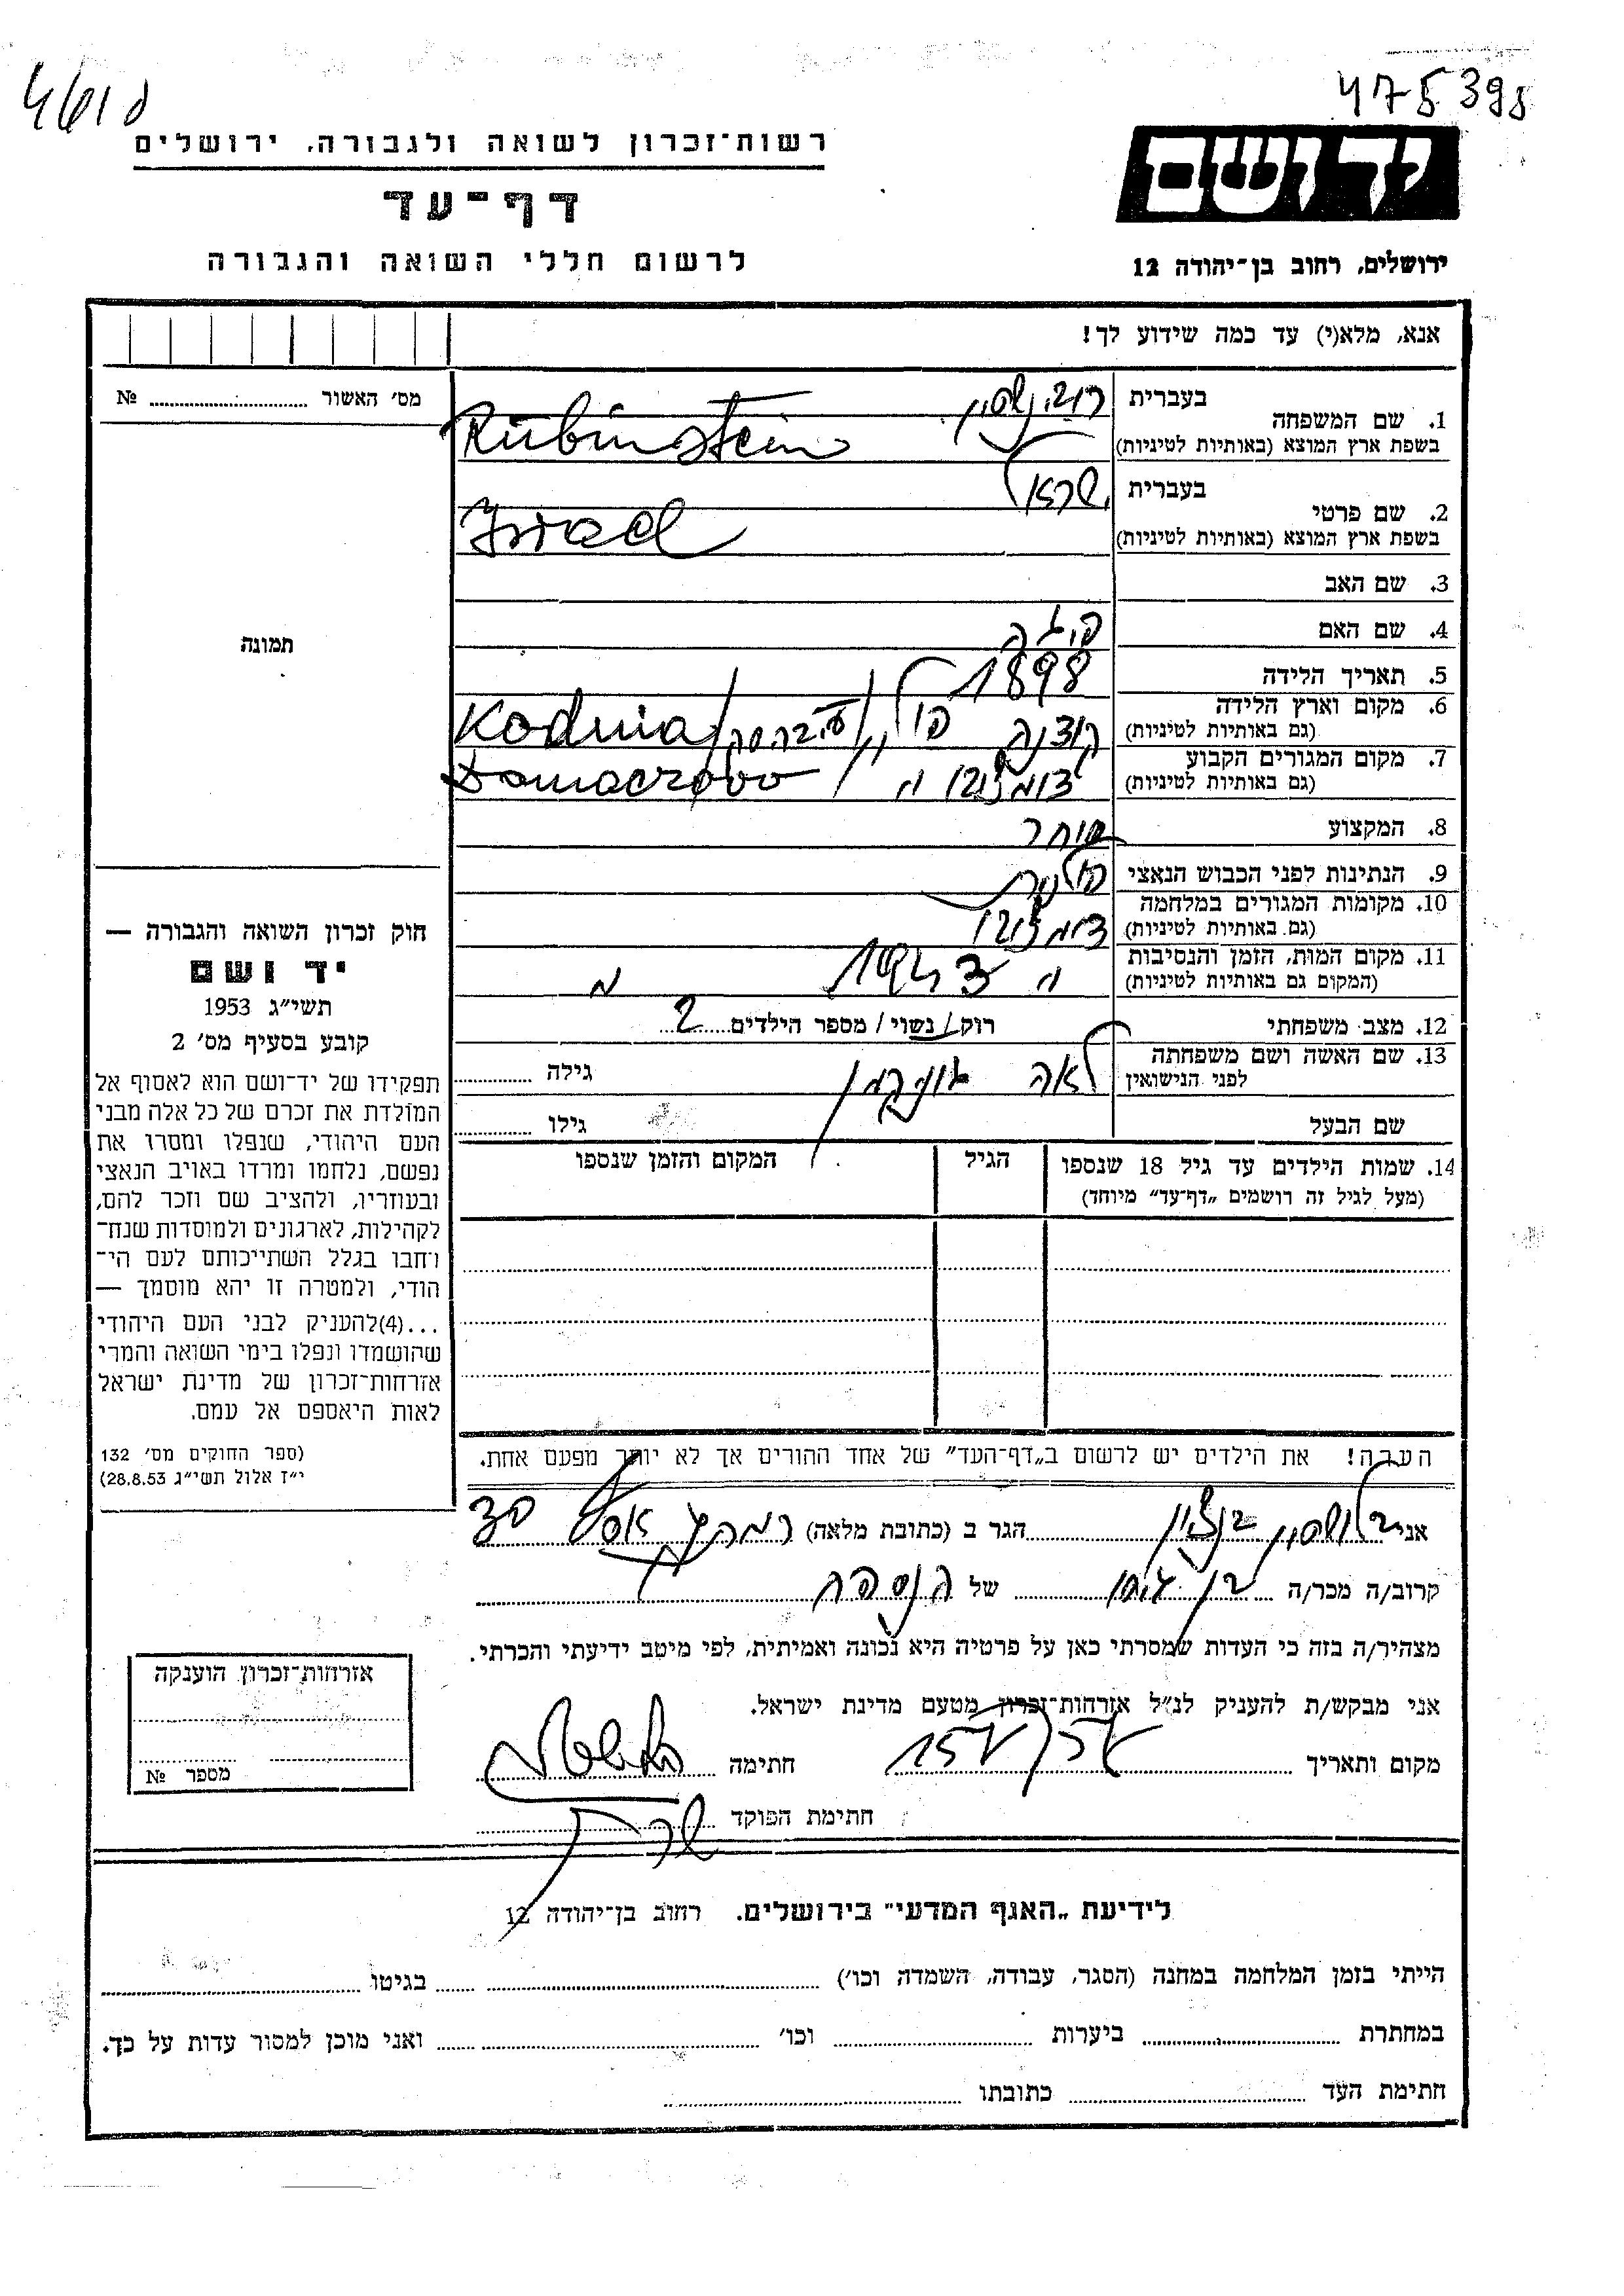 475395
רשות־זכרון לשואה ולגבורה, ירושלים
יד ושם
דף־עד
לרשום חללי השואה והגבורה
ירושלים, רחוב בן־יהודה 12
אנא, מלא(י) עד כמה שידוע לך!
מס׳ האשור № 
1. שם המשפחה בעברית רובינשטיין
בשפת ארץ המוצא (באותיות לטיניות) Rubinstein
2. שם פרטי בעברית ישראל
בשפת ארץ המוצא (באותיות לטיניות) Israel
3. שם האב
4. שם האם
5. תאריך הלידה 1898
6. מקום וארץ הלידה
(גם באותיות לטיניות) קודנה Kodnia
7. מקום המגורים הקבוע
(גם באותיות לטיניות) Domaczowo
8. המקצוע סוחר
9. הנתינות לפני הכבוש הנאצי פולנית
10. מקומות המגורים במלחמה
(גם באותיות לטיניות)
11. מקום המות, הזמן והנסיבות
(המקום גם באותיות לטיניות)
12. מצב משפחתי רוק/נשוי/ מספר הילדים 2
13. שם האשה ושם משפחתה
לפני הנישואין לאה גילה
שם הבעל גילו
14. שמות הילדים עד גיל 18 שנספו הגיל המקום והזמן שנספו
(מעל לגיל זה רושמים „דף־עד” מיוחד)
הערה! את הילדים יש לרשום ב„דף־העד” של אחד ההורים אך לא יותר מפעם אחת.
תמונה
חוק זכרון השואה והגבורה —
יד ושם
תשי״ג 1953
קובע בסעיף מס׳ 2
תפקידו של יד־ושם הוא לאסוף אל
המולדת את זכרם של כל אלה מבני
העם היהודי, שנפלו ומסרו את
נפשם, נלחמו ומרדו באויב הנאצי
ובעוזריו, ולהציב שם וזכר להם,
לקהילות, לארגונים ולמוסדות שנח־
רחבו בגלל השתייכותם לעם הי־
הודי, ולמטרה זו יהא מוסמך —
...(4)להעניק לבני העם היהודי
שהושמדו ונפלו בימי השואה והמרי
אזרחות־זכרון של מדינת ישראל
לאות היאספם אל עמם.
(ספר החוקים מס׳ 132
י״ז אלול תשי״ג 28.8.53)
אני הגר ב (כתובת מלאה)
קרוב/ה מכר/ה של
מצהיר/ה בזה כי העדות שמסרתי כאן על פרטיה היא נכונה ואמיתית, לפי מיטב ידיעתי והכרתי.
אני מבקש/ת להעניק לנ״ל אזרחות־זכרון מטעם מדינת ישראל.
מקום ותאריך חתימה
חתימת הפוקד
אזרחות־זכרון הוענקה
מספר №
לידיעת „האגף המדעי” בירושלים. רחוב בן־יהודה 12
הייתי בזמן המלחמה במחנה (הסגר, עבודה, השמדה וכו׳) בגיטו
במחתרת ביערות וכו׳ ואני מוכן למסור עדות על כך.
חתימת העד כתובתו